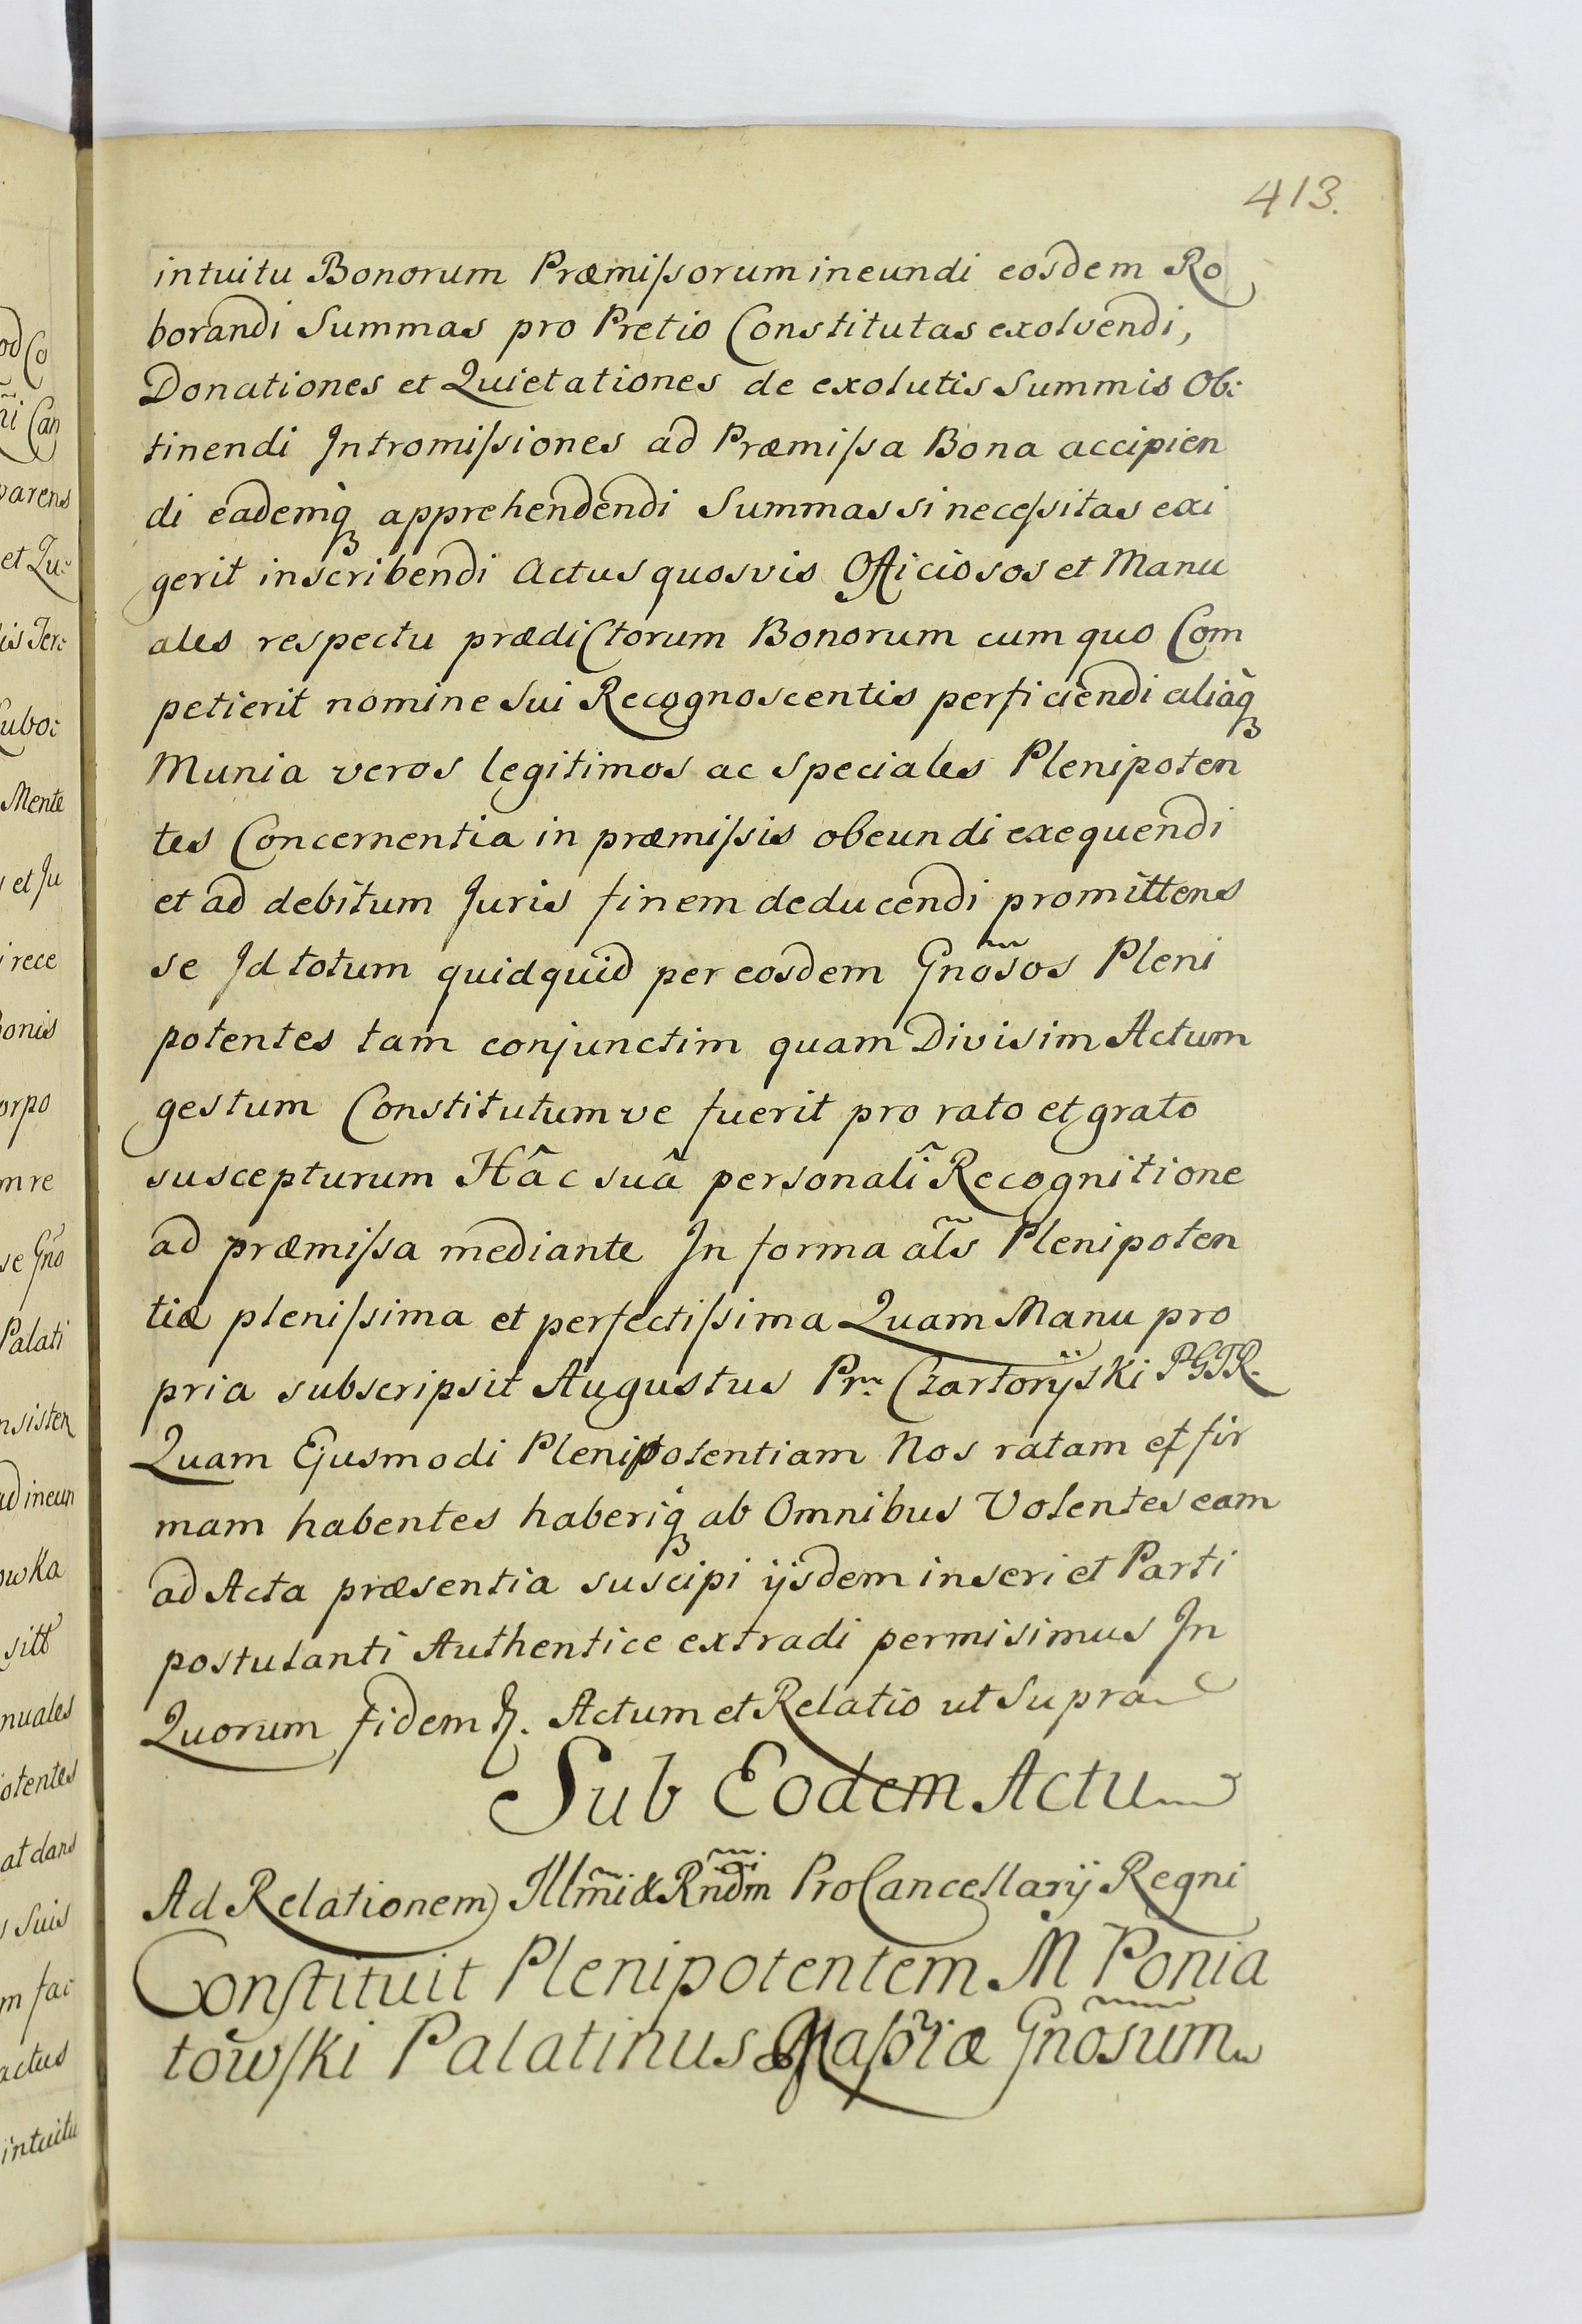 413.
intuitu Bonorum Præmiſsorum ineundi eosdem Ro
borandi Summas pro Pretio Constitutas exolvendi,
Donationes et Quietationes de exolutis Summis Ob:
tinendi Intromiſsiones ad Præmiſsa Bona accipien
di eademq́ apprehendendi Summas si neceſsitas exi
gerit inscribendi Actus quosvis Officiosos et Manu
ales respectu prædictorum Bonorum cum quo Com
petierit nomine Sui Recognoscentis perficiendi aliaq́
Munia veros legitimos ac Speciales Plenipoten
tes Concernentia in præmiſsis obeundi exequendi
et ad debitum Juris finem deducendi promittens
se Id totum quidquid per eosdem Gnõsos Pleni
potentes tam conjunctim quam Divisim Actum
gestum Constitutum ve fuerit pro rato et grato
suscepturum Hâc suâ personali Recognitione
ad præmiſsa mediante In forma al̃s Plenipoten
tiæ pleniſsima et perfectiſsima Quam Manu pro
pria subscripsit Augustus Pr. Czartoryiski PGTR.
Quam Ejusmodi Plenipotentiam Nos ratam et fir
mam habentes haberiq́ ab Omnibus Volentes eam
ad Acta præsentia suscipi ijsdem inseri et Parti
postulanti Authentice extradi permisimus In
Quorum fidem &. Actum et Relatio ut Supra
Sub Eodem Actu
Ad Relationem Illm̃i & Rndm̃i ProCancellarij Regni
Conſtituit Plenipotentem M Ponia
towſki Palatinus Maſõiæ Gnõsum
od Co
ñi Can
parens
et Qu:
is Ter:
ubo:
Mente
et Ju
i rece
onis
orpo
m re
se Gño
Palati
nsisten
ad ineun
owka
sitt
nuales
otentes
at dans
s Suis
m fac
actus
intuitu